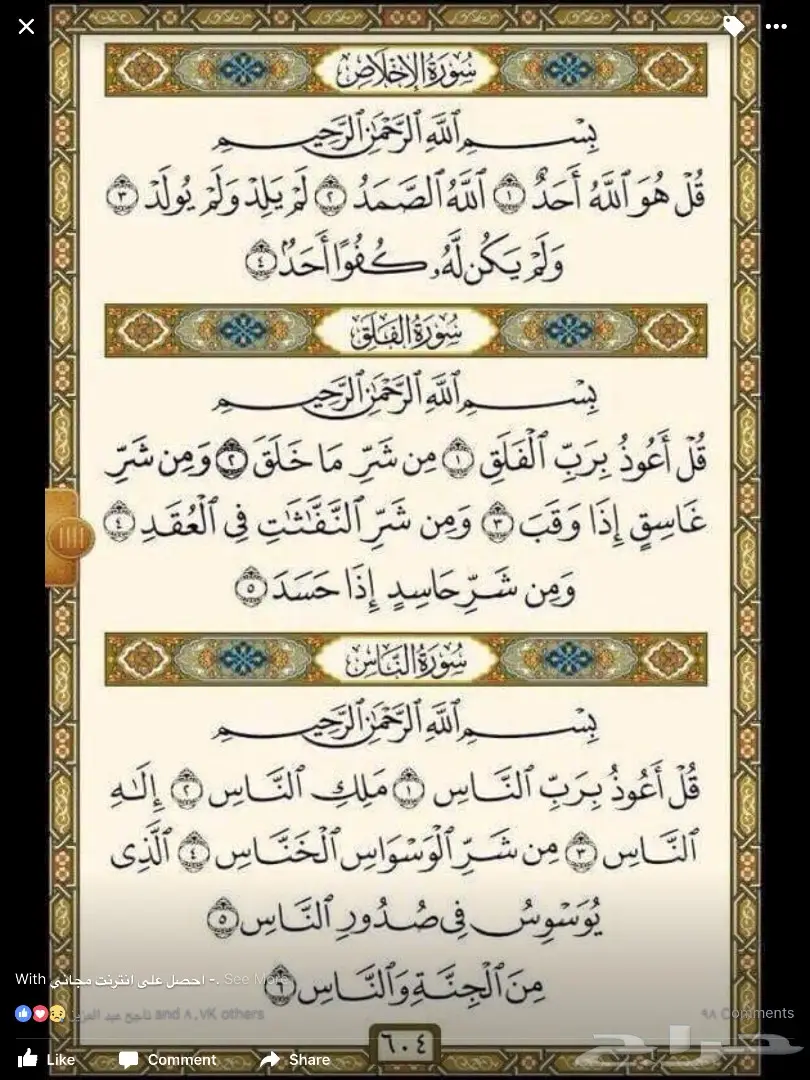 سُورَةُ الإِخْلَاصِ
بِسْمِ ٱللَّهِ ٱلرَّحْمَٰنِ ٱلرَّحِيمِ
قُلْ هُوَ ٱللَّهُ أَحَدٌ ١ ٱللَّهُ ٱلصَّمَدُ ٢ لَمْ يَلِدْ وَلَمْ يُولَدْ ٣
وَلَمْ يَكُن لَّهُۥ كُفُوًا أَحَدٌۢ ٤
سُورَةُ الفَلَقِ
بِسْمِ ٱللَّهِ ٱلرَّحْمَٰنِ ٱلرَّحِيمِ
قُلْ أَعُوذُ بِرَبِّ ٱلْفَلَقِ ١ مِن شَرِّ مَا خَلَقَ ٢ وَمِن شَرِّ
غَاسِقٍ إِذَا وَقَبَ ٣ وَمِن شَرِّ ٱلنَّفَّٰثَٰتِ فِى ٱلْعُقَدِ ٤
وَمِن شَرِّ حَاسِدٍ إِذَا حَسَدَ ٥
سُورَةُ النَّاسِ
بِسْمِ ٱللَّهِ ٱلرَّحْمَٰنِ ٱلرَّحِيمِ
قُلْ أَعُوذُ بِرَبِّ ٱلنَّاسِ ١ مَلِكِ ٱلنَّاسِ ٢ إِلَٰهِ
ٱلنَّاسِ ٣ مِن شَرِّ ٱلْوَسْوَاسِ ٱلْخَنَّاسِ ٤ ٱلَّذِى
يُوَسْوِسُ فِى صُدُورِ ٱلنَّاسِ ٥
With احصل على انترنت مجاني -. See More
مِنَ ٱلْجِنَّةِ وَٱلنَّاسِ ٦
ناجح عبد العزيز and ٨,٧K others
٩٨ Comments
٦٠٤
حراج
Like Comment Share